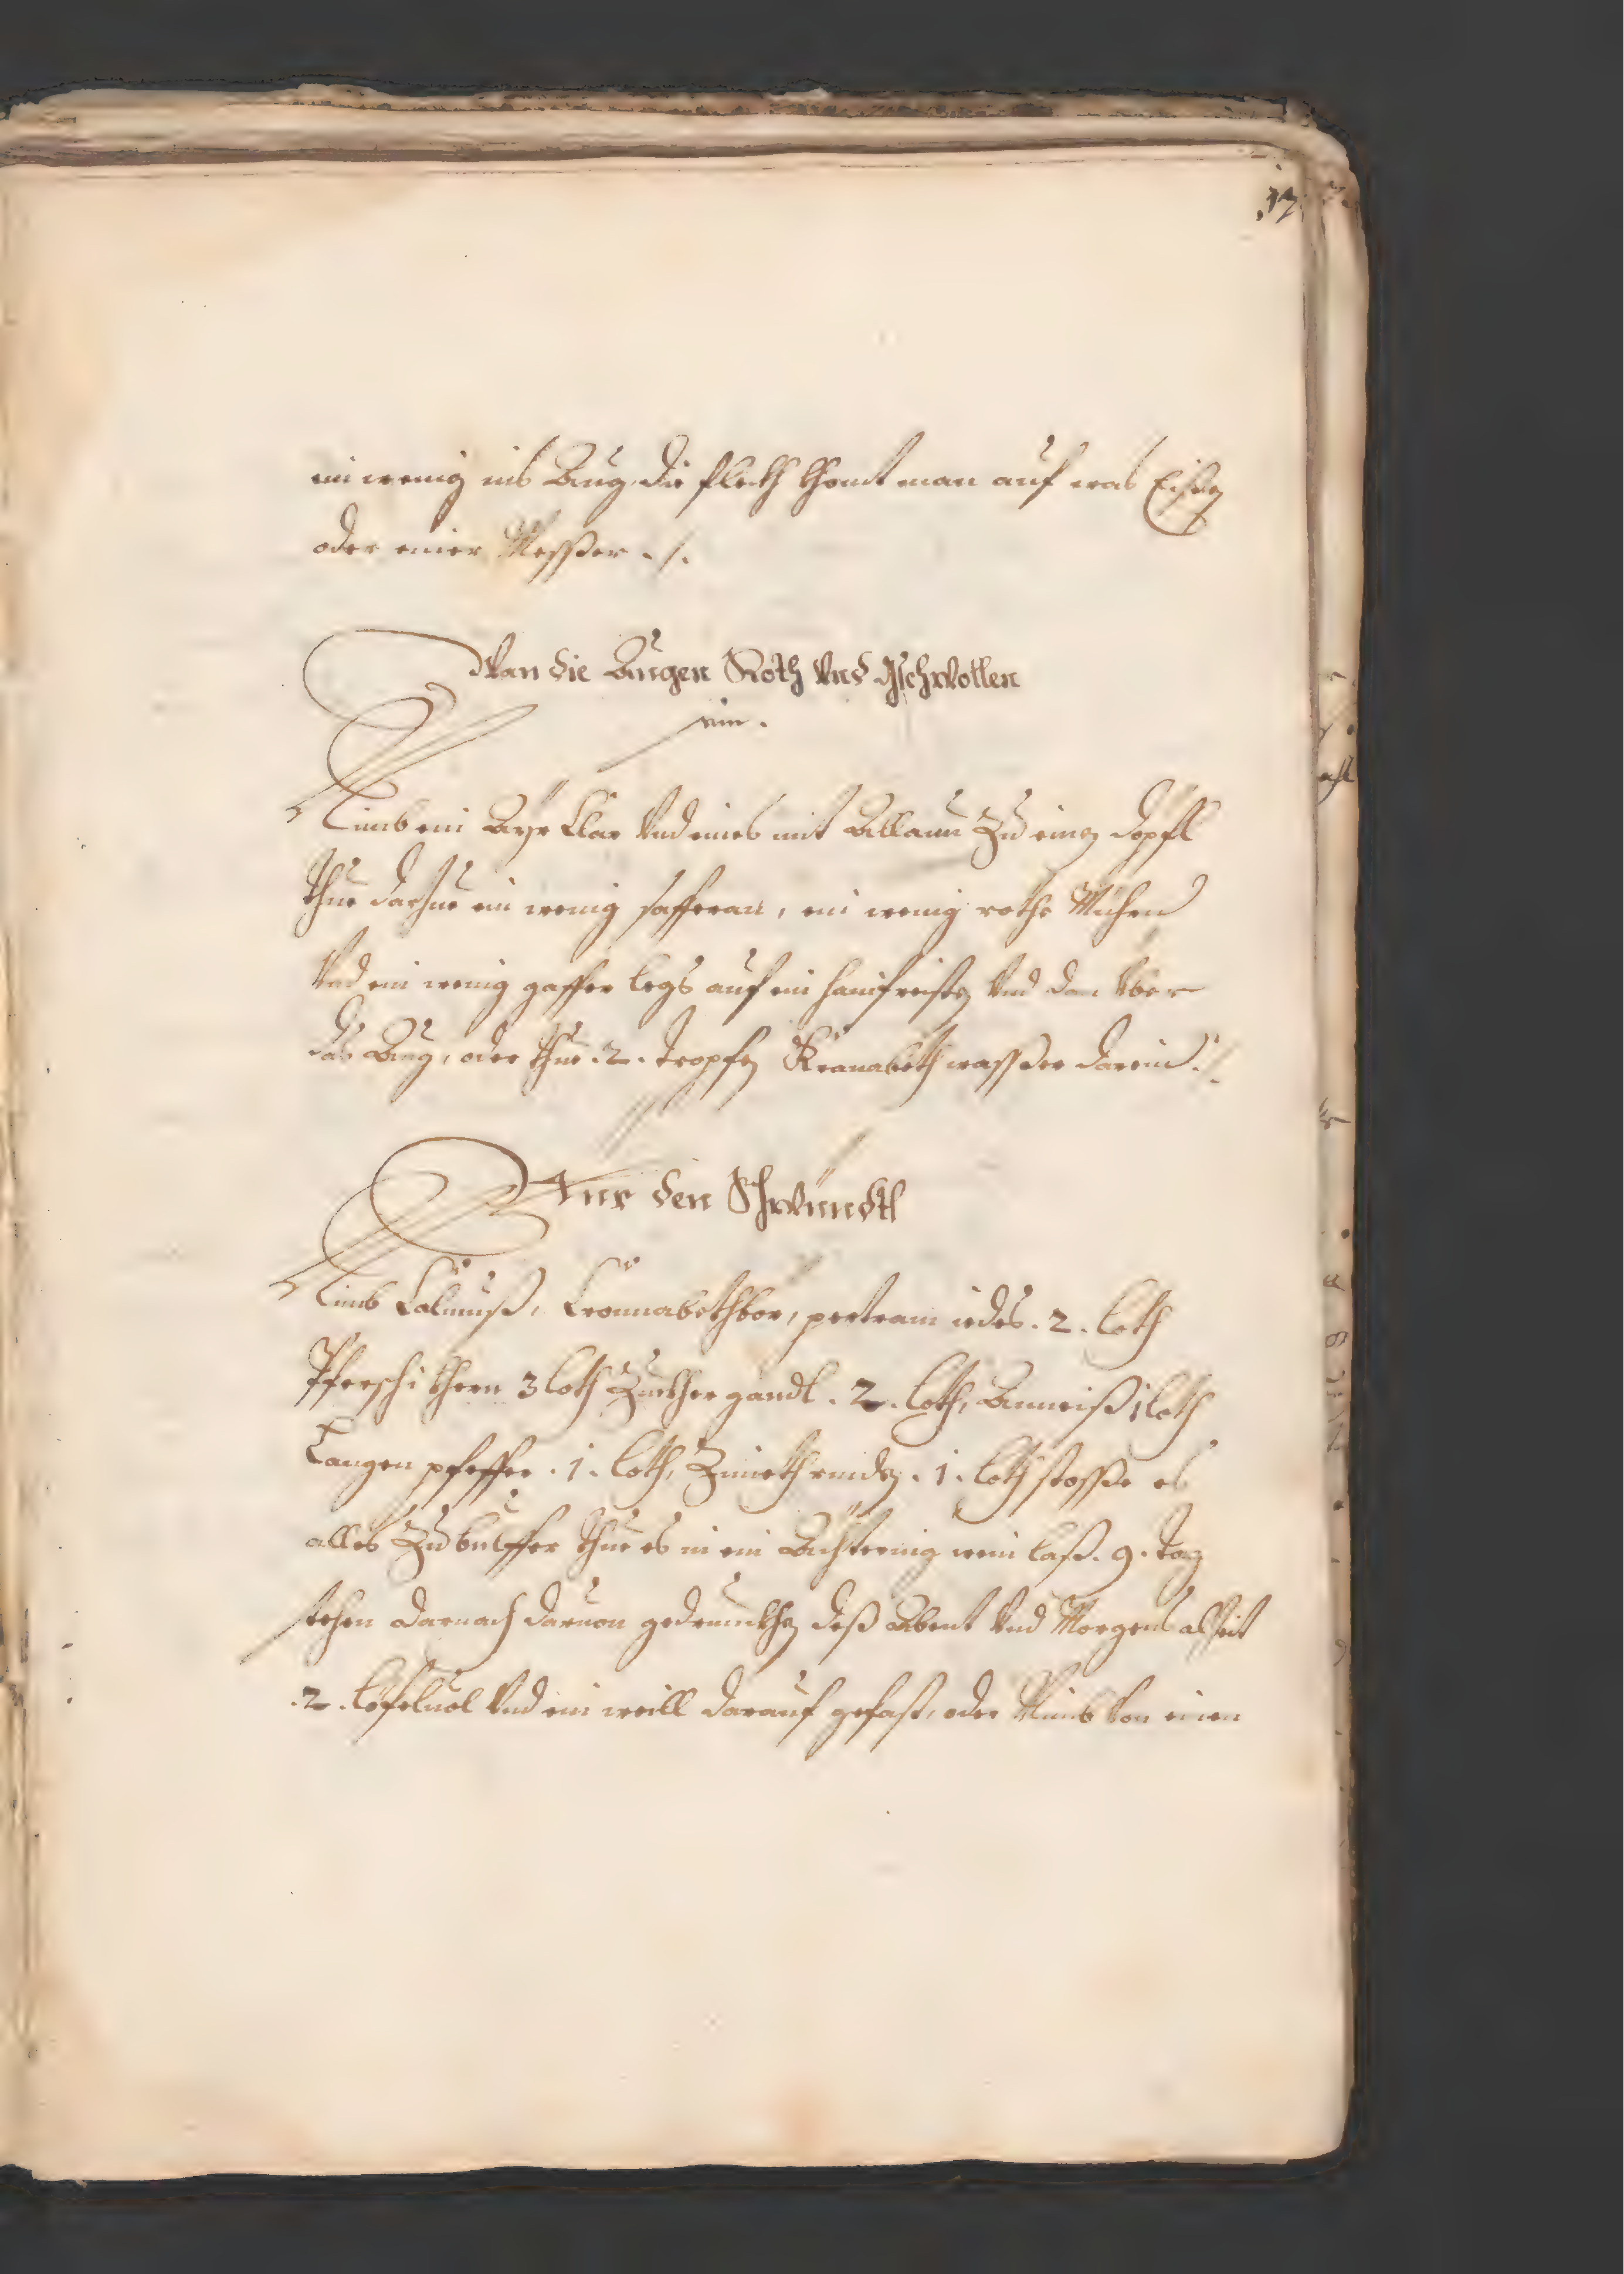 17
ein wenig ins Aug, die fleckh khomt man auf was Eisen
oder einer Messer ./.
Wan die Augen Roth Vnd gschwollen
sein.
Nimb ein Ayr Clar Vnd eines mit Allaun Zu einen
thue darzue ein wenig safferan, ein wenig rothe Mÿhrn
Vnd ein wenig gaffer legs auf ein Vnd dan Vber
das Aug, oder thue .2. tropfen Kranabeth wasser darein ./.
Für den Schwündtl
Nimb Calmuß, Cronnabethbör, pertram iedes .2. loth
Pferschi khern 3 loth Zuckher gandl .2. loth, Anneiß 1 loth
Langen pfeffer .1. loth, Zimeth rinden .1. loth stosse es
alles Zu bulffer thue es in ein wein laß .9. tag
stehen darnach daruon gedrunckhen deß Abent Vnd Morgens alzeit
.2. löfeluol Vnd ein weill darauf gefast, oder Nimb Von einen